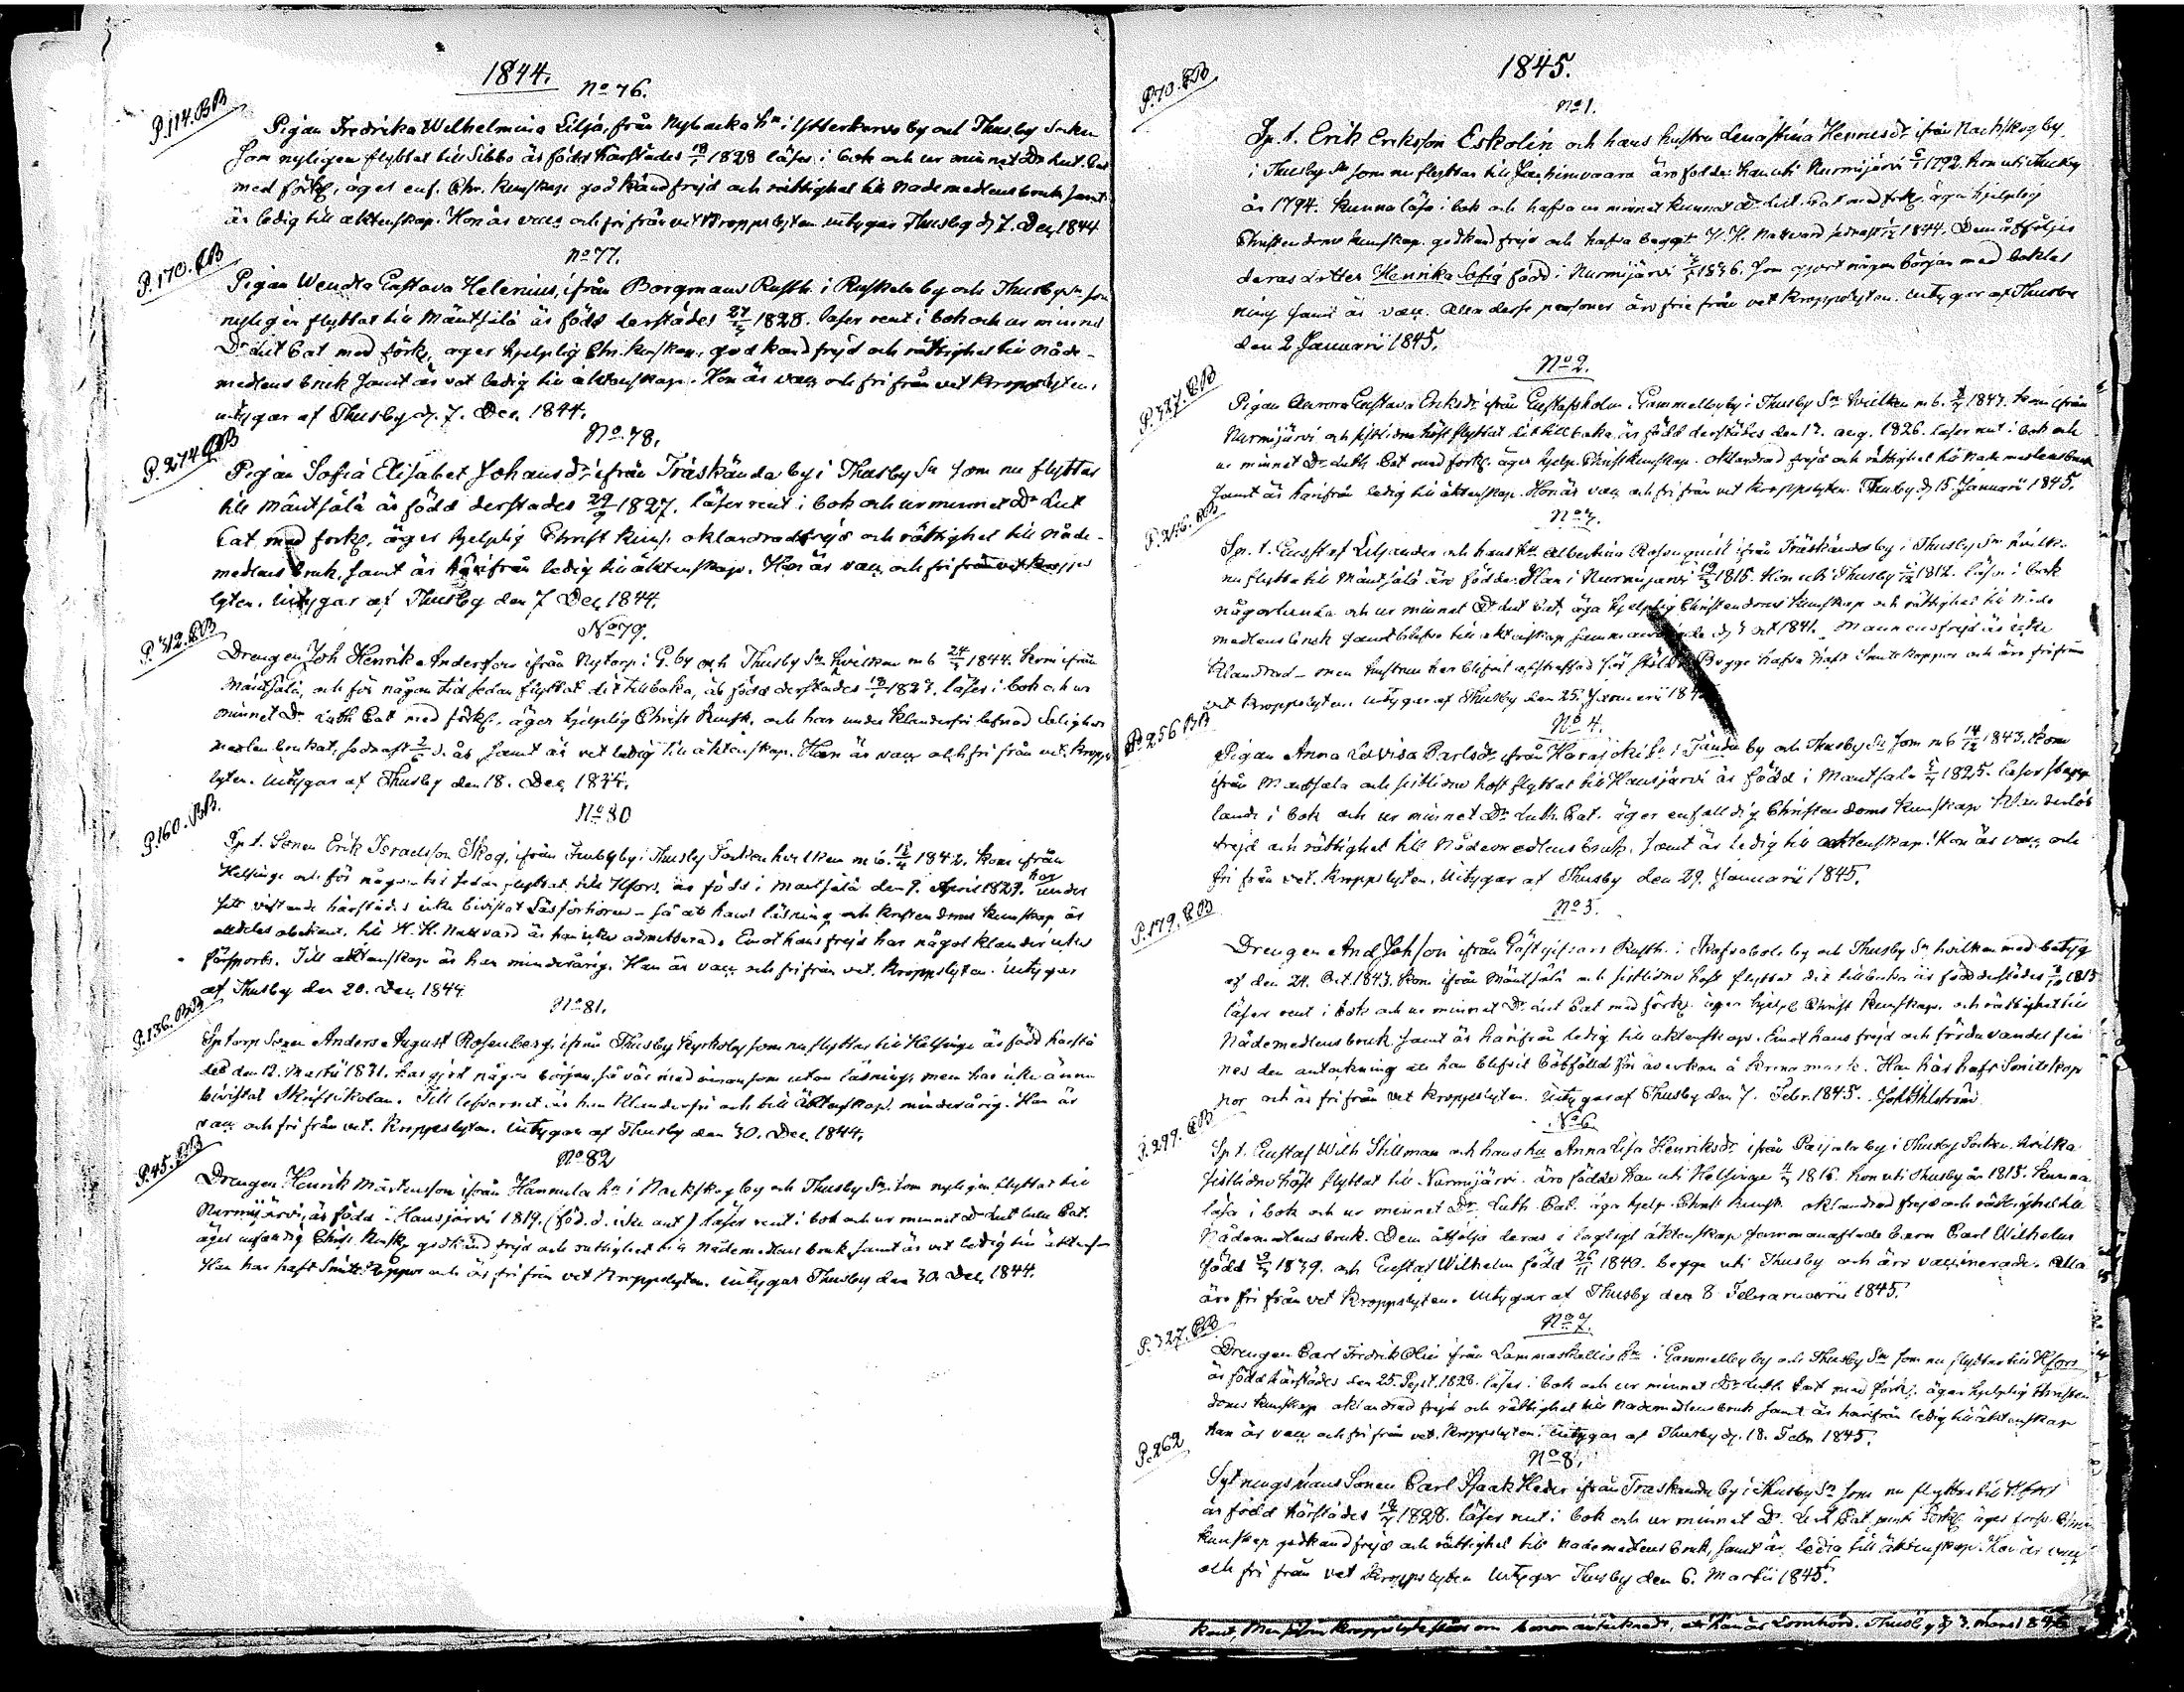 1844.
No 76.
P.114.BB
Pigan Fredrika Wilhelmina Lilja, från Nybacka hn i Ytterkurva by och Thusby Socken
som nyligen flyttat till Sibbo är född härstädes 18/1 1828 läser i bok och ur minnet Dr Lut. Cat
med förkl, äger enf. Chr. kunskap godkänd frejd och rättighet till Nademedlens bruk samt
är ledig till äktenskap. Hon är vacc och fri från vet Kroppslyten intygar Thusby d 7. Dec 1844
No 77.
P.170.BB
Pigan Wendla Gustava Helenius, ifrån Borgmans Rusth. i Ruskela by och Thusby Sn som
nyligen flyttat till Mäntsälä är född derstädes 27/ 1828. läser rent i bok och ur minnet
Dr Lut Cat med förkl, äger hjelplig Chr. kunskap, god känd frejd och rättighet till Nåde-
medlens bruk samt är vet ledig till äktenskap. Hon är vacc och fri från vet kroppslyten,
intygar af Thusby d. 7. Dec. 1844.
No 78.
P.274 BB
Pigan Sofia Elisabet Johansdr ifrån Träskända by i Thusby Sn som nu flyttar
till Mäntsälä är född derstades 29/9 1827. läser rent i bok och ur minnet Dr Lut
Cat med forkl, äger hjelplig Christ kuns. oklandrad frejd och rättighet till Nåde-
medlens bruk, samt är härifrån ledig till äktenskap. Hon är vacc och fri från vet kropps
lyten. intygar af Thusby den 7 Dec 1844.
No 79.
P.312.BB
Drengen Joh Henrik Andersson ifrån Nytorp i G. by och Thusby Sn hvilken m b 24/ 1844. kom ifrån
Mäntsälä, och för någon tid sedan flyttat dit tillbaka, är född derstädes 18/ 1827. läser i bok och ur
minnet Dr Luth Cat med förkl. äger hjelplig Christ kunsk. och har under klanderfri lefnad Salighets
medlen brukat, sednast 2/6 d. år samt är vet ledig till äktenskap. Han är vacc och fri från vet. kropps
lyten. intygar af Thusby den 18. Dec 1844.
No 80
P.160.BB.
Sp t. Sonen Erik Israelsson Skog, ifrån by i Thusby Socken hvilken m b. 1842. kom ifrån
Helsinge och för någon tid sedan flyttat till Hfors, är född i Mäntsälä den 9. April 1829. har under
sitt vistande härstädes icke bivistat Läsförhören - så att hans läsning och kristendoms kunskap är
aldeles obekant, till H. H. Nattvard är han icke admitterad. Emot hans frejd har något klander icke
försports. Till äktenskap är han minderårig. Han är vacc och fri från vet. kroppslyten. intygar
af Thusby den 20. Dec. 1844
No 81.
P.136.BB
Sp torp Sonen Anders August Rosenberg, ifrån Thusby Kyrkoby som nu flyttar till Helsinge är född härstä
des den 12. Martii 1831. har gjort någon början, så väl med innan som utan läsning, men har icke ännu
bivistat Skriftskolan. Till lefvernet är han klanderfri och till äktenskap minderårig. Han är
vacc och fri från vet. kroppslyten. intygar af Thusby den 30. Dec. 1844.
No 82
P.45.BB
Drengen Henrik Mårtensson ifrån Hannula hn i Nackskog by och Thusby Sn som nyligen flyttat till
Nurmijärvi, är född i Hausjärvi 1819. (föd. d. icke ant) läser rent i bok och ur minnet Dr Cat.
äger Christ. kunsk. godkänd frejd och rättighet till Nådemedlens bruk samt är vet ledig till äktensk
Han har haft Smitt koppor och är fri från vet Kroppslyten. intygar Thusby den 30. Dec 1844.
1845.
No 1.
P.70.BB
Sp. t. Erik Eriksson Eskolin och hans hustru Lenastina Hennesdr ifrån Nackskog by
i Thusby Sn som nu flyttar till äro födde: Han uti Nurmijärvi 6/1 1792. hon uti Thusby
år 1794. kunna läsa i bok och hafva ur minnet kunnat Dr Lut. Cat med förkl, äga hjelplig
Christendoms kunskap. godkänd frejd och hafva begått H. H. Nattvard sednast 1844. Dem åtföljer
deras dotter Henrika Sofia född i Nurmijärvi 1836. som gjort någon början med bokläs
ning samt är vacc. Alla desse personer äro frie från vet kroppslyten. intygar af Thusby
den 2 Januarii 1845.
No 2.
P.327.BB
Pigan Aurora Gustava Eriksdr ifrån Gustafsholm i Gammelby by i Thusby Sn hvilken m b. 1843. kom ifrån
Nurmijärvi och sistlidne höst flyttat dit tillbaka är född derstädes den 17. aug. 1826. läser rent i bok och
ur minnet Dr Luth Cat med förkl. äger hjelp. Christ kunskap. oklandrad frejd och rättighet till Nåde medlens bruk
samt är härifrån ledig till äktenskap. Hon är vacc och fri från vet kroppslyten. Thusby d 15. Januarii 1845.
No 3.
P.246.BB
Sp. t. Gustaf Liljander och hans hu Albertina Rosenquist ifrån Träskända by i Thusby Sn hvilka
nu flytta till Mäntsälä äro födde: Han i Nurmijärvi 19/3 1815. Hon uti Thusby 1812. läsa i bok
någorlunda och ur minnet Dr Lut Cat, äga hjelplig Christendoms kunskap och rättighet till Nåde
medlens bruk samt blefvo till äktenskap d 3 oct 1841. Mannens frejd är icke
klandrad - men hustrun har blifvit afstraffad för Begge hafva haft Smittkoppor och äro fri från
vet kroppslyten. intygar af Thusby den 25. Januarii 184
No 4.
P.256 BB
Pigan Anna Lovisa Carlsdr ifrån hn i by och Thusby Sn som m b 14/12 1843. kom
ifrån Mäntsälä och sistlidne höst flyttat till Hausjärvi är född i Mäntsälä 1825. läser stapp
lande i bok och ur minnet Dr Luth. Cat. äger enfalldig Christendoms kunskap
frejd och rättighet till Nådemedlens bruk, samt är ledig till äktenskap. Hon är vacc och
fri från vet. kroppslyten. intygar af Thusby den 29. Januarii 1845.
No 5.
P.179.BB
Drengen And Johsson ifrån Gästgifvars Rusth. i Skafvabole by och Thusby Sn hvilken med betyg
af den 24. Oct. 1843. kom ifrån Mäntsälä och sistlidne höst flyttat dit tillbaka är född derstädes 1815
läser rent i bok och ur minnet Dr Lut Cat med förkl äger hjelpl Christ kunskap. och rättighet till
Nådemedlens bruk, samt är härifrån ledig till äktenskap. Emot hans frejd och förhållande fin
nes den anteckning att han blifvit bötfälld för åverkan å krono mark. Han har haft Smittkop
por och är fri från vet kroppslyten. intygar af Thusby den 7. Febr. 1845. Joh Ahlström
No 6
P.299.BB
Sp t. Gustaf Wilh Stillman och hans hu Anna Lisa Henriksdr ifrån Paijala by i Thusby Socken. hvilka
sistlidne höst flyttat till Nurmijärvi. äro födde han uti Helsinge 1816. hon uti Thusby år 1815. kunna
läsa i bok och ur minnet Dr Luth. Cat. äga hjelp. Christ kunsk. oklandrad frejd och rättighet till
Nådemedlens bruk. Dem åtfölja deras i lagligt äktenskap sammanaflade barn Carl Wilhelm
född 1839. och Gustaf Wilhelm född 26/11 1840. begge uti Thusby och äro vaccinerade. Alla
äro fri från vet kroppslyten. intygar af Thusby den 8 Februarii 1845.
No 7.
P.327.BB
Drengen Carl Fredrik Olin ifrån Lammaskallio hn i Gammelby by och Thusby Sn som nu flyttar till Hfors
är född härstädes den 25. Sept. 1828. läser i bok och ur minnet Dr Luth Cat med förkl. äger hjelplig Christen
doms kunskap oklandrad frejd och rättighet till Nademedlens bruk samt är härifrån ledig till äktenskap
han är vacc och fri från vet. kroppslyten. intygar af Thusby d. 18. Febr. 1845.
No 8.
P.262
Sytningsmans Sonen Carl Isaak Heder ifrån Träskända by i Thusby Sn som nu flyttar till Hfors
är född härstädes 1828. läser rent i bok och ur minnet Dr. Lut Cat med Förkl äger
kunskap godkänd frejd och rättighet till Nademedlens bruk, samt är ledig till äktenskap. Han är vacc
och fri från vet kroppslyten intygar Thusby den 6. Martii 1845.
honom antecknadt, att han är Lomhörd. Thusby d 3. mars 1845